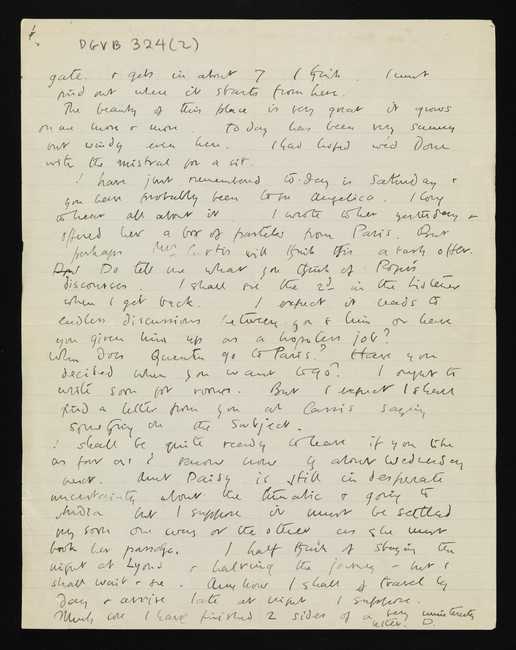 DGVB 324(2)
gate. & gets in about 7 I think. I must
find out where it starts from here.
The beauty of this place is very great it grows
on one more & more. Today has been very sunny
but windy even here. I had hoped we'd done
with the mistral for a bit.
I have just remembered to-day is Saturday &
you have probably been to see Angelica. I long
to hear all about it. I wrote to her yesterday &
offered her a box of pastels from Paris. But
perhaps Mrs Curtis will think this a rash offer.
Do tell me what you think of Roger's
discourses. I shall see the 2nd in the Listener
when I get back. I expect it leads to
endless discussions between you & him or have
you given him up as a hopeless job?
When does Quentin go to Paris? Have you
decided when you want to go? I ought to
write soon for rooms. But I expect I shall
find a letter from you at Cassis saying
something on the subject.
I shall be quite ready to leave if you like
as far as I know now by about Wednesday
next. But Daisy is still in desperate
uncertainty about the lunatic & going to
India but I suppose it must be settled
very soon one way or the other as she must
book her passage. I half think of staying the
night at Lyons & halving the journey - but I
shall wait & see. Anyhow I shall travel by
day & arrive late at night I suppose.
My love I have finished 2 sides of a very
letter. D.